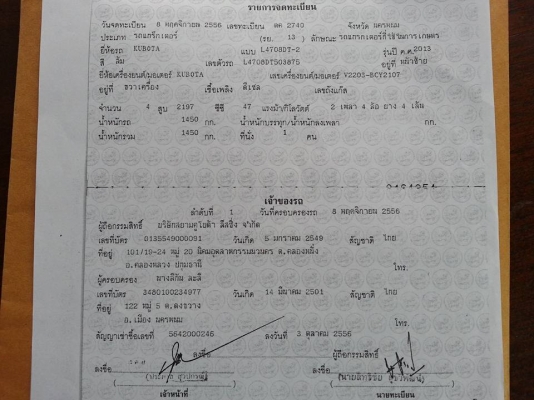 รายการจดทะเบียน
วันจดทะเบียน 8 พฤศจิกายน 2556 เลขทะเบียน ตค 2740 จังหวัด นครพนม
ประเภท รถแทรกเตอร์ (รย. 13 ) ลักษณะ รถแทรกเตอร์ที่ใช้ในการเกษตร
ยี่ห้อรถ KUBOTA แบบ L4708DT-2 รุ่นปี ค.ศ. 2013
สี ส้ม เลขตัวรถ L4708DT503875 อยู่ที่ หน้าซ้าย
ยี่ห้อเครื่องยนต์/มอเตอร์ KUBOTA เลขเครื่องยนต์/มอเตอร์ V2203-BCY2107
อยู่ที่ ขวาเครื่อง เชื้อเพลิง ดีเซล เลขถังแก๊ส
จำนวน 4 สูบ 2197 ซีซี 47 แรงม้า/กิโลวัตต์ 2 เพลา 4 ล้อ ยาง 4 เส้น
น้ำหนักรถ 1450 กก. น้ำหนักบรรทุก/น้ำหนักลงเพลา กก.
น้ำหนักรวม 1450 กก. ที่นั่ง 1 คน
เจ้าของรถ
ลำดับที่ 1 วันที่ครอบครองรถ 8 พฤศจิกายน 2556
ผู้ถือกรรมสิทธิ์ บริษัทสยามคูโบต้า ลีสซิ่ง จำกัด
เลขที่บัตร 0135549000091 วันเกิด 5 มกราคม 2549 สัญชาติ ไทย
ที่อยู่ 101/19-24 หมู่ 20 นิคมอุตสาหกรรมนวนคร ต.คลองหนึ่ง
อ.คลองหลวง ปทุมธานี โทร.
ผู้ครอบครอง
เลขที่บัตร 3480100234977 วันเกิด 14 มีนาคม 2501 สัญชาติ ไทย
ที่อยู่ 122 หมู่ 5 ต.ดงขวาง
อ.เมือง นครพนม โทร.
สัญญาเช่าซื้อเลขที่ 5642000246 ลงวันที่ 3 ตุลาคม 2556
ลงชื่อ ผู้ถือกรรมสิทธิ์
ลงชื่อ ลงชื่อ
เจ้าหน้าที่ นายทะเบียน